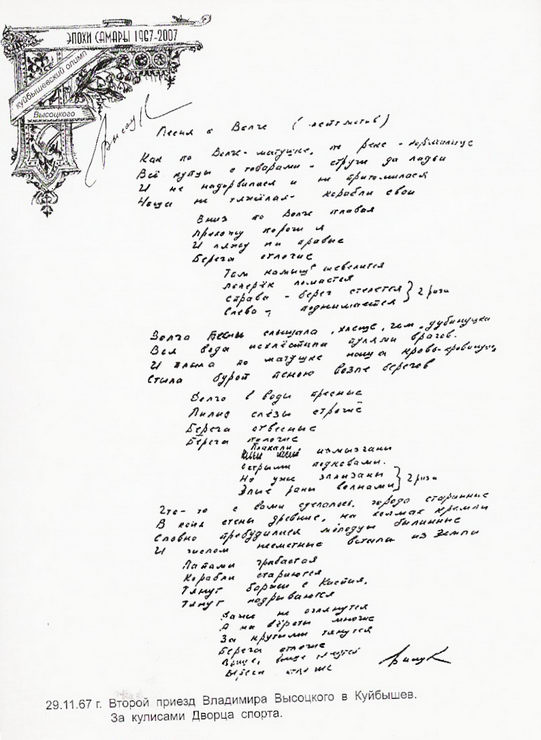 ЭПОХИ САМАРЫ 1967-2007
куйбышевский олимп
Высоцкого
Песня о Волге
Как по Волге-матушке, по реке-кормилице
Всё купцы с товарами - струги да ладьи
И не надорвалася и не притомилася
Ноша не тяжёлая - корабли свои
Вниз по Волге плавая
Прохожу пороги я
И гляжу на правые
Берега пологие
Там камыш шевелится
Поперёк ломается
Справа - берег стелется
Слева - поднимается
2 раза
Волга песни слышала хлеще, чем "дубинушка"
Вся вода исхлёстана пулями врагов.
И плыла по матушке наша кровь-кровинушка
Стыла бурой пеною возле берегов
Долго в воды пресные
Лились слёзы строгие
Берега отвесные
Берега пологие
Плакали, измызганы
Острыми подковами.
Но уже зализаны
Злые раны волнами
2 раза
Что-то с вами сделалось, города старинные
В коих стены древние, на холмах кремли
Словно пробудилися молодцы былинные
И числом несметные встали из земли
Лапами грабастая
Корабли стараются
Тянут баржи с Каспия,
Тянут надрываются
Тянут не оглянутся
А на вёрсты многие
За крутыми тянутся
Берега пологие
29.11.67 г. Второй приезд Владимира Высоцкого в Куйбышев.
За кулисами Дворца спорта.